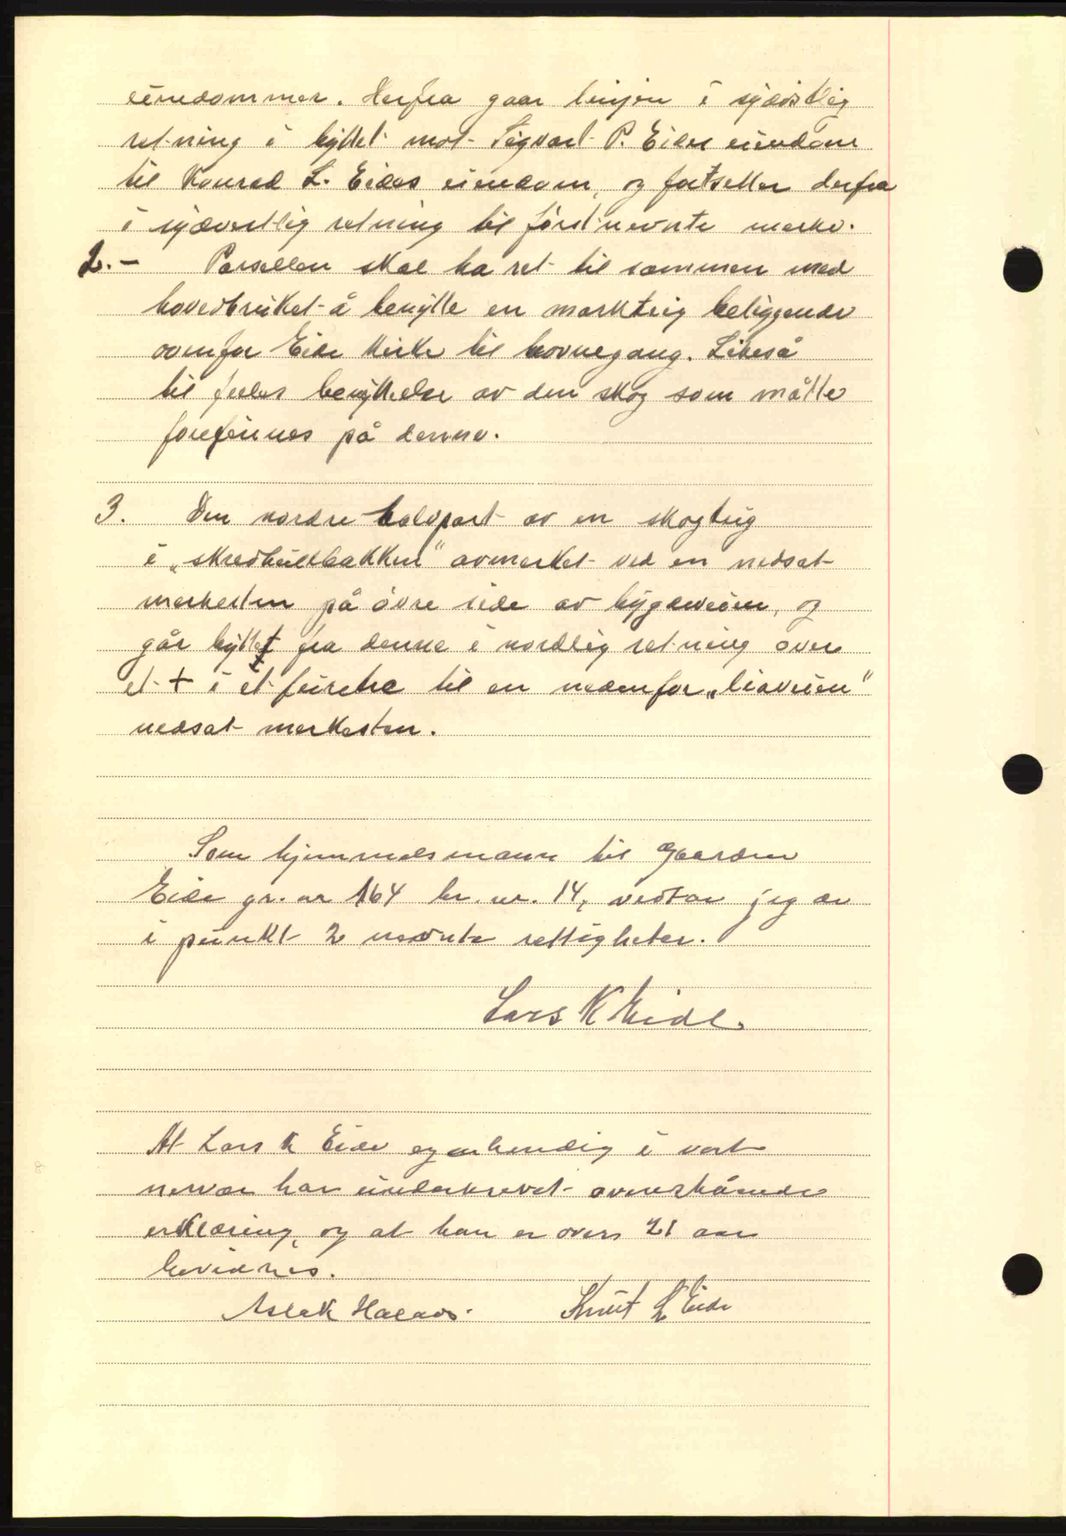 eiendommer. Herfra gaar linjen i sydøstlig
retning i byttet mot Sigvart P. Eides eiendom
til Konrad L. Eides eiendom, og fortsetter derfra
i sydvestlig retning til førstnevnte merke.
2.- Parsellen skal ha ret til sammen med
hovedbruket å benytte en markteig beliggende
ovenfor Eide kirke til havnegang. Likeså
til felles benyttelse av den skog som måtte
forefinnes på denne.
3. Den nordre halvpart av en skogteig
i „ avmerket ved en nedsat
merkesten på øvre side av bygdeveien, og
går byttet fra denne i nordlig retning over
et + i et til en nedenfor „liaveien"
nedsat merkesten.
Som hjemmelsmann til gaarden
Eide gr. nr 164 br. nr. 14, vedtar jeg de
i punkt 2 nevnte rettigheter.
Lars K Eide.
At Lars K Eide egenhendig i vort
nervær har underskrevet ovenstående
erklæring, og at han er over 21 aar
bevidnes.
Aslak Knut L Eide